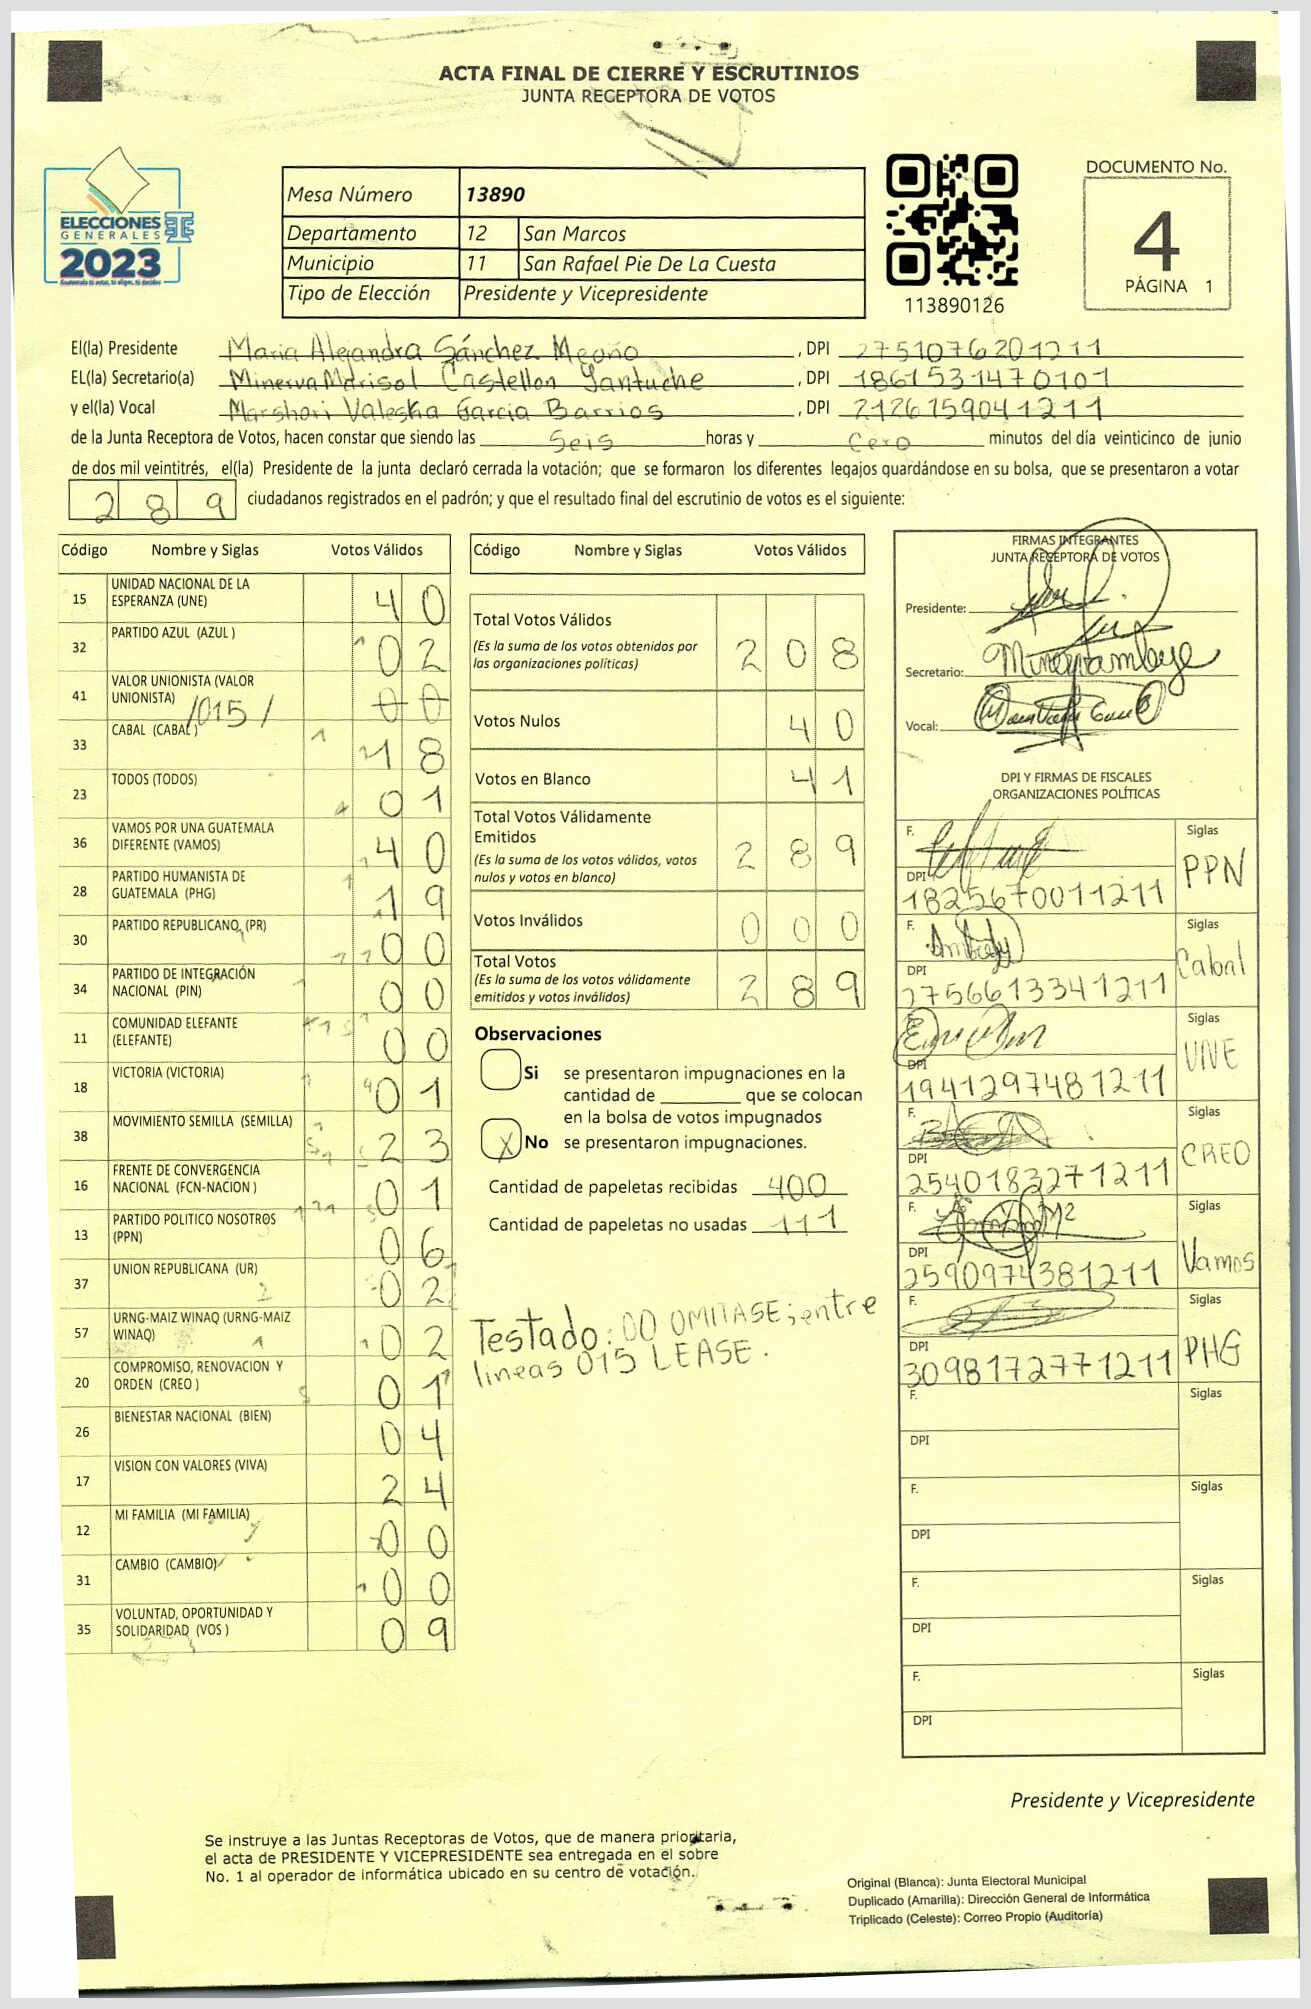 ACTA FINAL DE CIERRE Y ESCRUTINIOS
JUNTA RECEPTORA DE VOTOS
ELECCIONES
GENERALES
2023
Mesa Número 13890
Departamento 12 San Marcos
Municipio 11 San Rafael Pie De La Cuesta
Tipo de Elección Presidente y Vicepresidente
113890126
DOCUMENTO No.
4
PÁGINA 1
El(la) Presidente Maria Alejandra Sánchez Meoño, DPI 2751076201211
EL(la) Secretario(a) Minerva Marisol Castellon Santuche, DPI 1861531470101
y el(la) Vocal Marshori Valeska Garcia Barrios, DPI 2126159041211
de la Junta Receptora de Votos, hacen constar que siendo las Seis horas y Cero minutos del día veinticinco de junio
de dos mil veintitrés, el(la) Presidente de la junta declaró cerrada la votación; que se formaron los diferentes legajos guardándose en su bolsa, que se presentaron a votar
289 ciudadanos registrados en el padrón; y que el resultado final del escrutinio de votos es el siguiente:
Código Nombre y Siglas Votos Válidos
15 UNIDAD NACIONAL DE LA ESPERANZA (UNE) 40
32 PARTIDO AZUL (AZUL ) 02
41 VALOR UNIONISTA (VALOR UNIONISTA) /015/ 00
33 CABAL (CABAL ) 18
23 TODOS (TODOS) 01
36 VAMOS POR UNA GUATEMALA DIFERENTE (VAMOS) 40
28 PARTIDO HUMANISTA DE GUATEMALA (PHG) 19
30 PARTIDO REPUBLICANO (PR) 00
34 PARTIDO DE INTEGRACIÓN NACIONAL (PIN) 00
11 COMUNIDAD ELEFANTE (ELEFANTE) 00
18 VICTORIA (VICTORIA) 01
38 MOVIMIENTO SEMILLA (SEMILLA) 23
16 FRENTE DE CONVERGENCIA NACIONAL (FCN-NACION ) 01
13 PARTIDO POLITICO NOSOTROS (PPN) 06
37 UNION REPUBLICANA (UR) 02
57 URNG-MAIZ WINAQ (URNG-MAIZ WINAQ) 02
20 COMPROMISO, RENOVACION Y ORDEN (CREO ) 01
26 BIENESTAR NACIONAL (BIEN) 04
17 VISION CON VALORES (VIVA) 24
12 MI FAMILIA (MI FAMILIA) 00
31 CAMBIO (CAMBIO) 00
35 VOLUNTAD, OPORTUNIDAD Y SOLIDARIDAD (VOS ) 09
Código Nombre y Siglas Votos Válidos
Total Votos Válidos 208
(Es la suma de los votos obtenidos por
las organizaciones políticas)
Votos Nulos 40
Votos en Blanco 41
Total Votos Válidamente
Emitidos 289
(Es la suma de los votos válidos, votos
nulos y votos en blanco)
Votos Inválidos 000
Total Votos 289
(Es la suma de los votos válidamente
emitidos y votos inválidos)
Observaciones
Si se presentaron impugnaciones en la
cantidad de ________ que se colocan
en la bolsa de votos impugnados
X No se presentaron impugnaciones.
Cantidad de papeletas recibidas 400
Cantidad de papeletas no usadas 111
Testado: 00 OMITASE; entre
lineas 015 LEASE.
FIRMAS INTEGRANTES
JUNTA RECEPTORA DE VOTOS
Presidente:
Secretario:
Vocal:
DPI Y FIRMAS DE FISCALES
ORGANIZACIONES POLÍTICAS
F. Siglas PPN
DPI 1825670011211
F. Siglas Cabal
DPI 2756613341211
F. Siglas UNE
DPI 1941297481211
F. Siglas CREO
DPI 2540183271211
F. Siglas Vamos
DPI 2590974381211
F. Siglas PHG
DPI 3098172771211
F. Siglas
DPI
F. Siglas
DPI
F. Siglas
DPI
F. Siglas
DPI
Presidente y Vicepresidente
Se instruye a las Juntas Receptoras de Votos, que de manera prioritaria,
el acta de PRESIDENTE Y VICEPRESIDENTE sea entregada en el sobre
No. 1 al operador de informática ubicado en su centro de votación.
Original (Blanca): Junta Electoral Municipal
Duplicado (Amarilla): Dirección General de Informática
Triplicado (Celeste): Correo Propio (Auditoría)